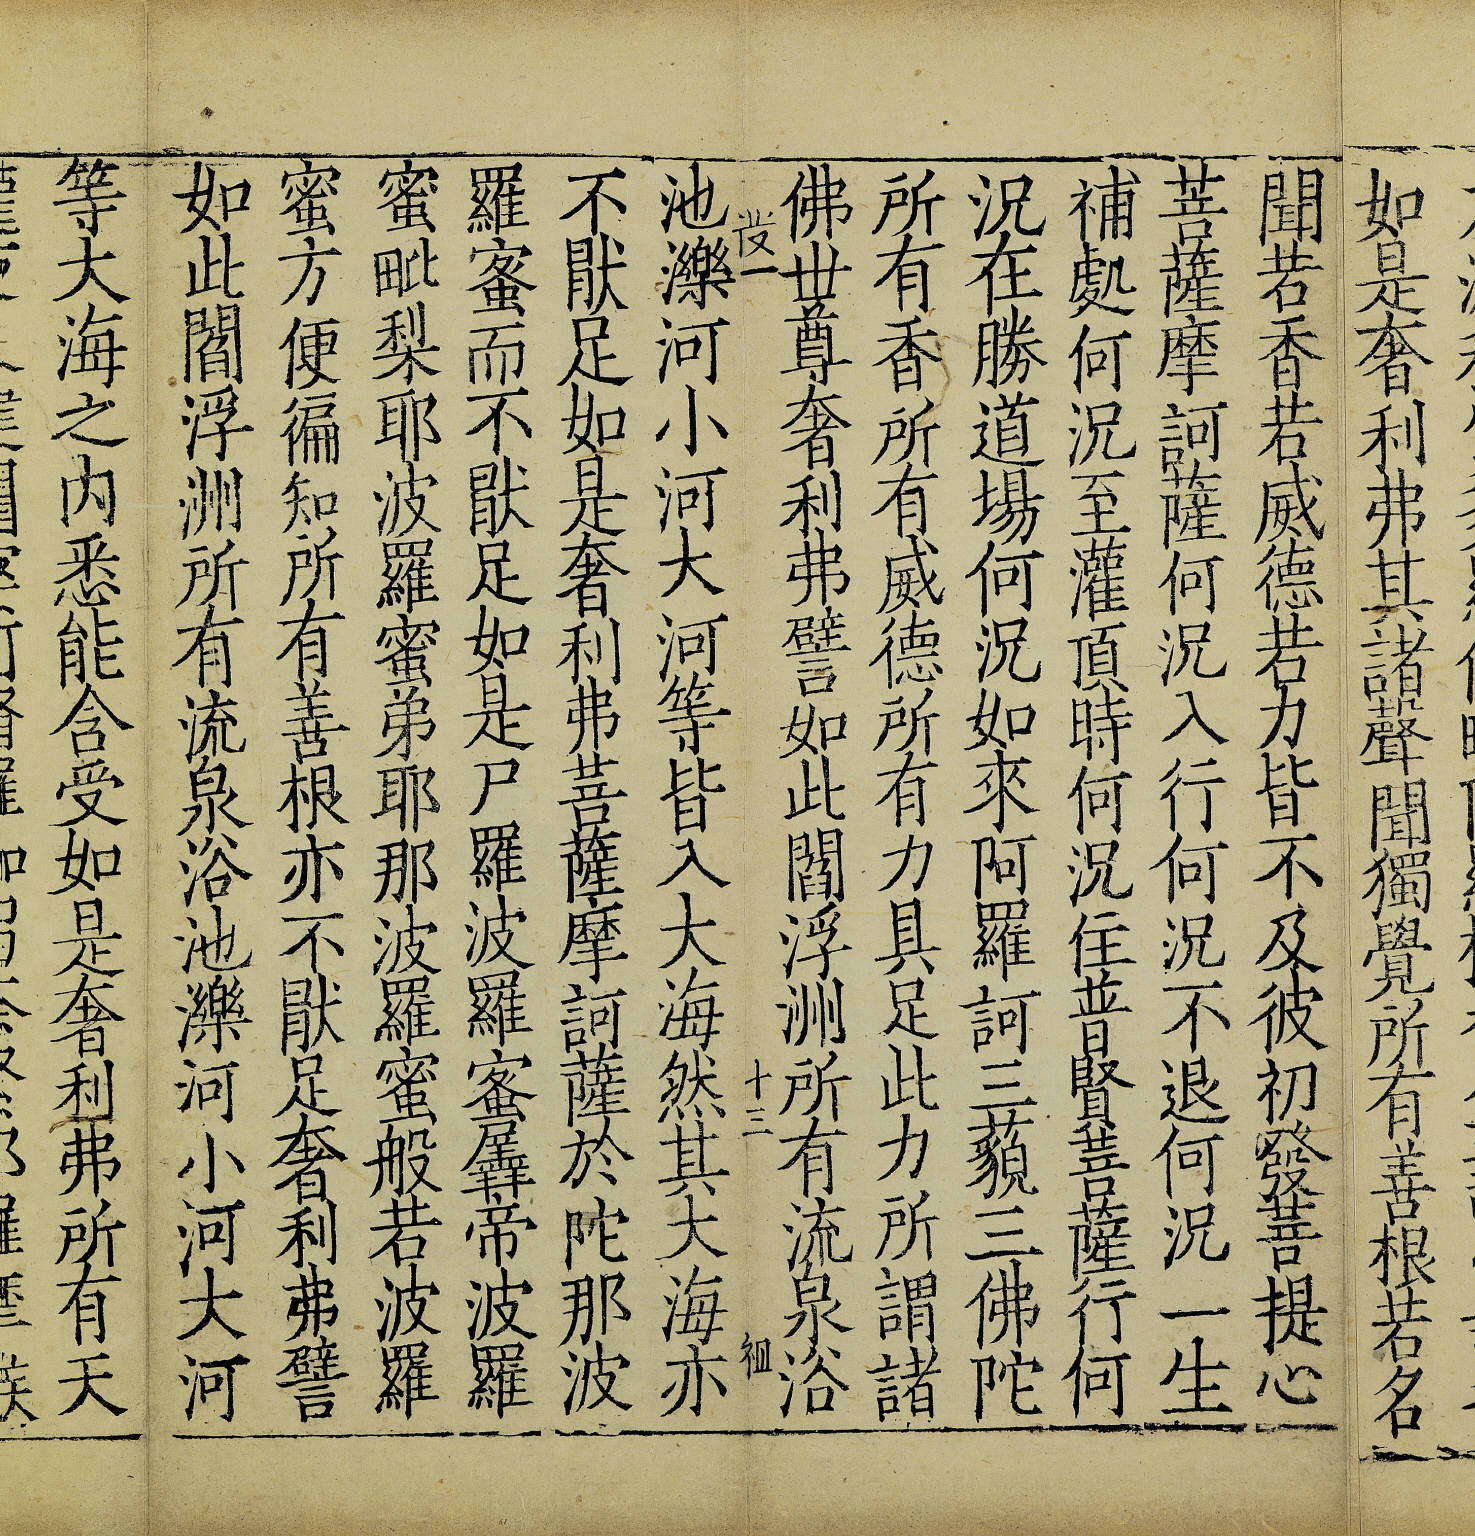 如是奢利弗其諸聲聞獨覺所有善根若名
聞若香若威德若力皆不及彼初發菩提心
菩薩摩訶薩何況入行何況不退何況一生
補處何況至灌頂時何況住普賢菩薩行何
況在勝道場何況如來阿羅訶三藐三佛陀
所有香所有威德所有力具足此力所謂諸
佛世尊奢利弗譬如此閻浮洲所有流泉浴
十三
池濼河小河大河等皆入大海然其大海亦
不猒足如是奢利弗菩薩摩訶薩於陀那波
羅蜜而不猒足如是尸羅波羅蜜羼帝波羅
蜜毗梨耶波羅蜜弟耶那波羅蜜般若波羅
蜜方便徧知所有善根亦不猒足奢利弗譬
如此閻浮洲所有流泉浴池濼河小河大河
等大海之内悉能含受如是奢利弗所有天